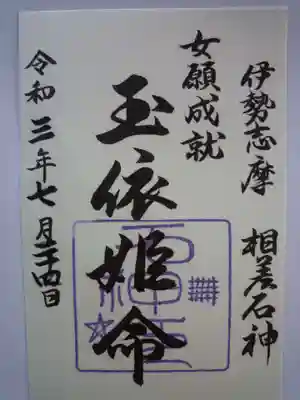 伊勢志摩 相差石神
女願成就
玉依姫命
令和三年七月二十四日
石神